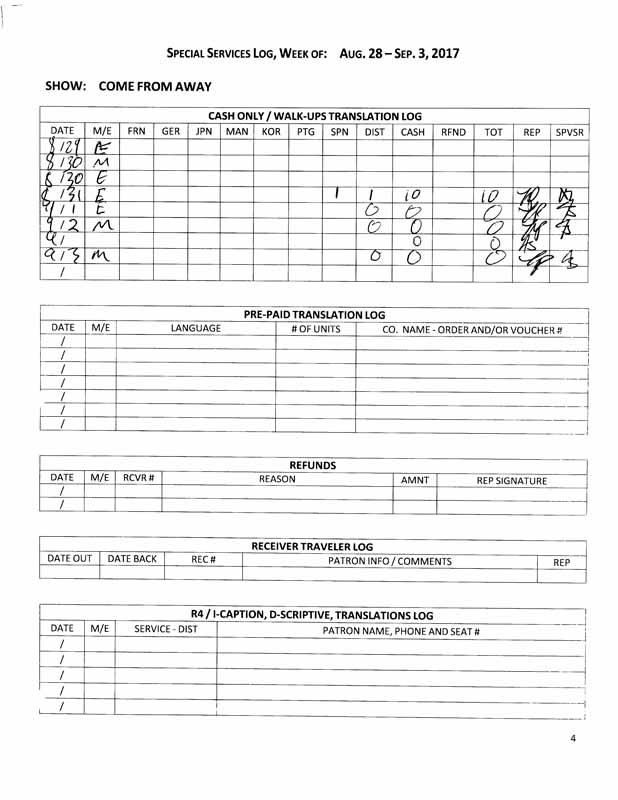 SPECIAL SERVICES LOG, WEEK OF: AUG. 28 – SEP. 3, 2017
SHOW: COME FROM AWAY
CASH ONLY / WALK-UPS TRANSLATION LOG
DATE M/E FRN GER JPN MAN KOR PTG SPN DIST CASH RFND TOT REP SPVSR
8/29 E
8/30 M
8/30 E
8/31 E 1 1 10 10
9/1 E 0 0 0
9/2 M 0 0 0
9/ 0 0
9/3 M 0 0 0
/
PRE-PAID TRANSLATION LOG
DATE M/E LANGUAGE # OF UNITS CO. NAME - ORDER AND/OR VOUCHER #
/
/
/
/
/
/
/
REFUNDS
DATE M/E RCVR # REASON AMNT REP SIGNATURE
/
/
RECEIVER TRAVELER LOG
DATE OUT DATE BACK REC # PATRON INFO / COMMENTS REP
R4 / I-CAPTION, D-SCRIPTIVE, TRANSLATIONS LOG
DATE M/E SERVICE - DIST PATRON NAME, PHONE AND SEAT #
/
/
/
/
/
4